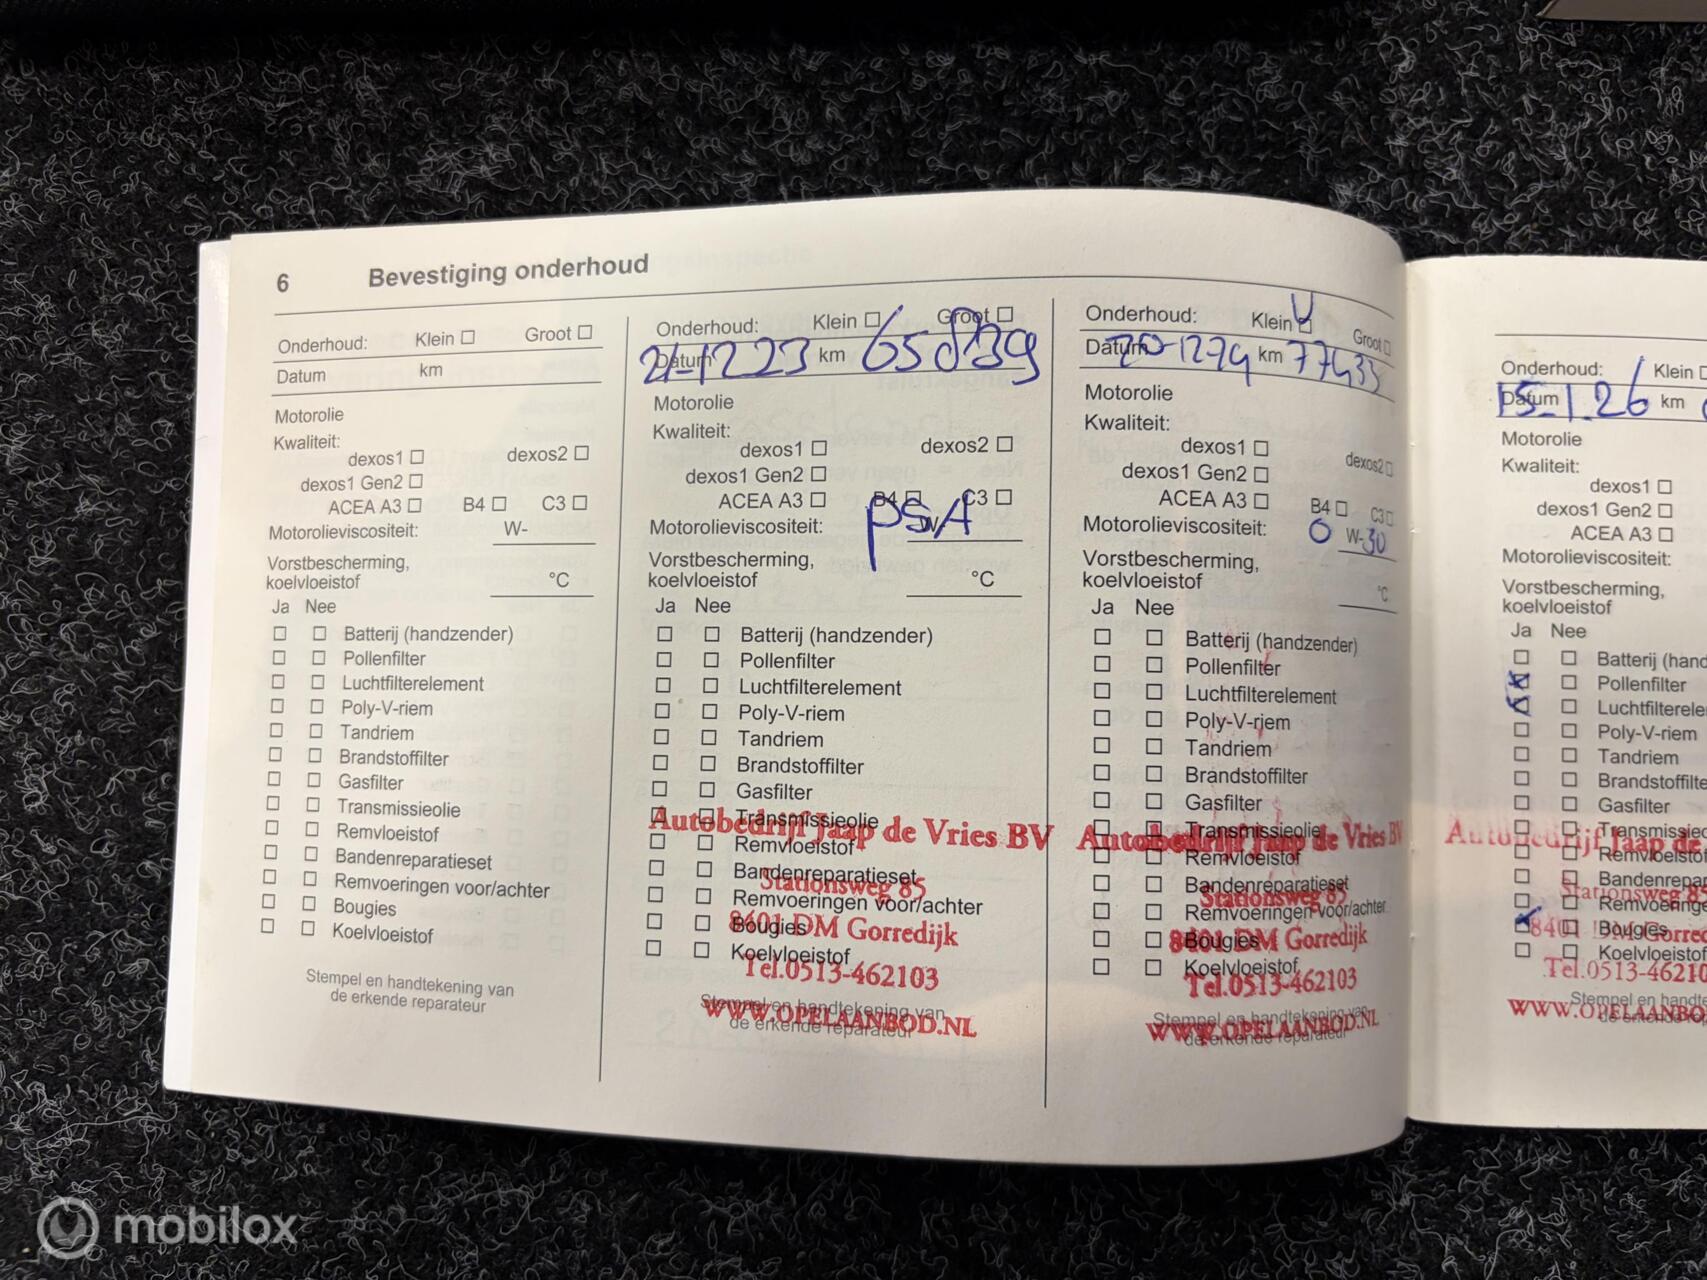 6 Bevestiging onderhoud
Onderhoud: Klein Groot
Datum km
Motorolie
Kwaliteit:
dexos1 dexos2
dexos1 Gen2
ACEA A3 B4 C3
Motorolieviscositeit: W-
Vorstbescherming,
koelvloeistof °C
Ja Nee
Batterij (handzender)
Pollenfilter
Luchtfilterelement
Poly-V-riem
Tandriem
Brandstoffilter
Gasfilter
Transmissieolie
Remvloeistof
Bandenreparatieset
Remvoeringen voor/achter
Bougies
Koelvloeistof
Stempel en handtekening van
de erkende reparateur
Onderhoud: Klein Groot
Datum 21-1223 km 65839
Motorolie
Kwaliteit:
dexos1 dexos2
dexos1 Gen2
ACEA A3 B4 C3
Motorolieviscositeit: W- PSA
Vorstbescherming,
koelvloeistof °C
Ja Nee
Batterij (handzender)
Pollenfilter
Luchtfilterelement
Poly-V-riem
Tandriem
Brandstoffilter
Gasfilter
Transmissieolie
Autobedrijf Jaap de Vries BV
Remvloeistof
Bandenreparatieset
Stationsweg 85
Remvoeringen voor/achter
Bougies
8401 DM Gorredijk
Koelvloeistof
Tel.0513-462103
Stempel en handtekening van
WWW.OPELAANBOD.NL
de erkende reparateur
Onderhoud: Klein Groot
Datum 20-1224 km 77433
Motorolie
Kwaliteit:
dexos1 dexos2
dexos1 Gen2
ACEA A3 B4 C3
Motorolieviscositeit: 0 W-30
Vorstbescherming,
koelvloeistof °C
Ja Nee
Batterij (handzender)
Pollenfilter
Luchtfilterelement
Poly-V-riem
Tandriem
Brandstoffilter
Gasfilter
Transmissieolie
Autobedrijf Jaap de Vries BV
Remvloeistof
Bandenreparatieset
Stationsweg 85
Remvoeringen voor/achter
Bougies
8401 DM Gorredijk
Koelvloeistof
Tel.0513-462103
Stempel en handtekening van
WWW.OPELAANBOD.NL
de erkende reparateur
Onderhoud: Klein
Datum 15-1-26 km
Motorolie
Kwaliteit:
dexos1
dexos1 Gen2
ACEA A3
Motorolieviscositeit:
Vorstbescherming,
koelvloeistof
Ja Nee
Batterij (hand
Pollenfilter
Luchtfilterele
Poly-V-riem
Tandriem
Brandstoffilte
Gasfilter
Transmissie
Autobedrijf Jaap de
Remvloeistof
Bandenrepar
Stationsweg 85
Remvoeringe
Bougies
8401 DM Gorre
Koelvloeistof
Tel.0513-46210
Stempel en handte
WWW.OPELAANBO
de erkende repa
mobilox